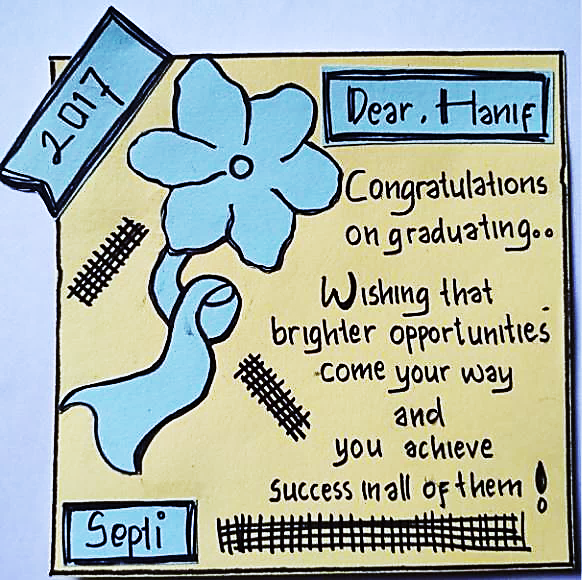 2017
Dear. Hanif
Congratulations
on graduating..
Wishing that
brighter opportunities
come your way
and
you achieve
success in all of them!
Septi